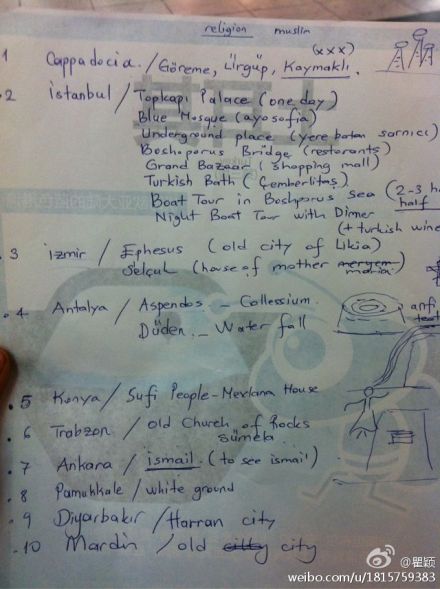 religion muslim
(xxx)
1 Cappadocia. / Göreme, Ürgüp, Kaymaklı.
.2 istanbul / Topkapi Palace (one day)
Blue Mosque (ayosofia)
Underground place (yere batan sarnıcı)
Boshoporus Bridge (restorants)
Grand Bazaar (shopping mall)
Turkish Bath (Çemberlitaş)
Boat Tour in Boshporus sea (2-3 h
half
Night Boat Tour with Dinner
(+ turkish wine
. 3 izmir / Ephesus (old city of Likia)
Selçuk (house of mother meryem)
maria
. 4 Antalya / Aspendos - Collessium.
anf
Düden - Water fall
.5 Konya / Sufi People - Mevlana House
. 6 Trabzon / old Church of Rocks
Sümela
. 7 Ankara / ismail. (to see ismail)
. 8 Pamukkale / white ground
. 9 Diyarbakır / Harran city
. 10 Mardin / old city
@瞿颖
weibo.com/u/1815759383